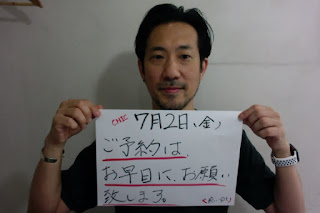 CHIC 7月2日、(金)
ご予約は
お早目に、お願い
致します。